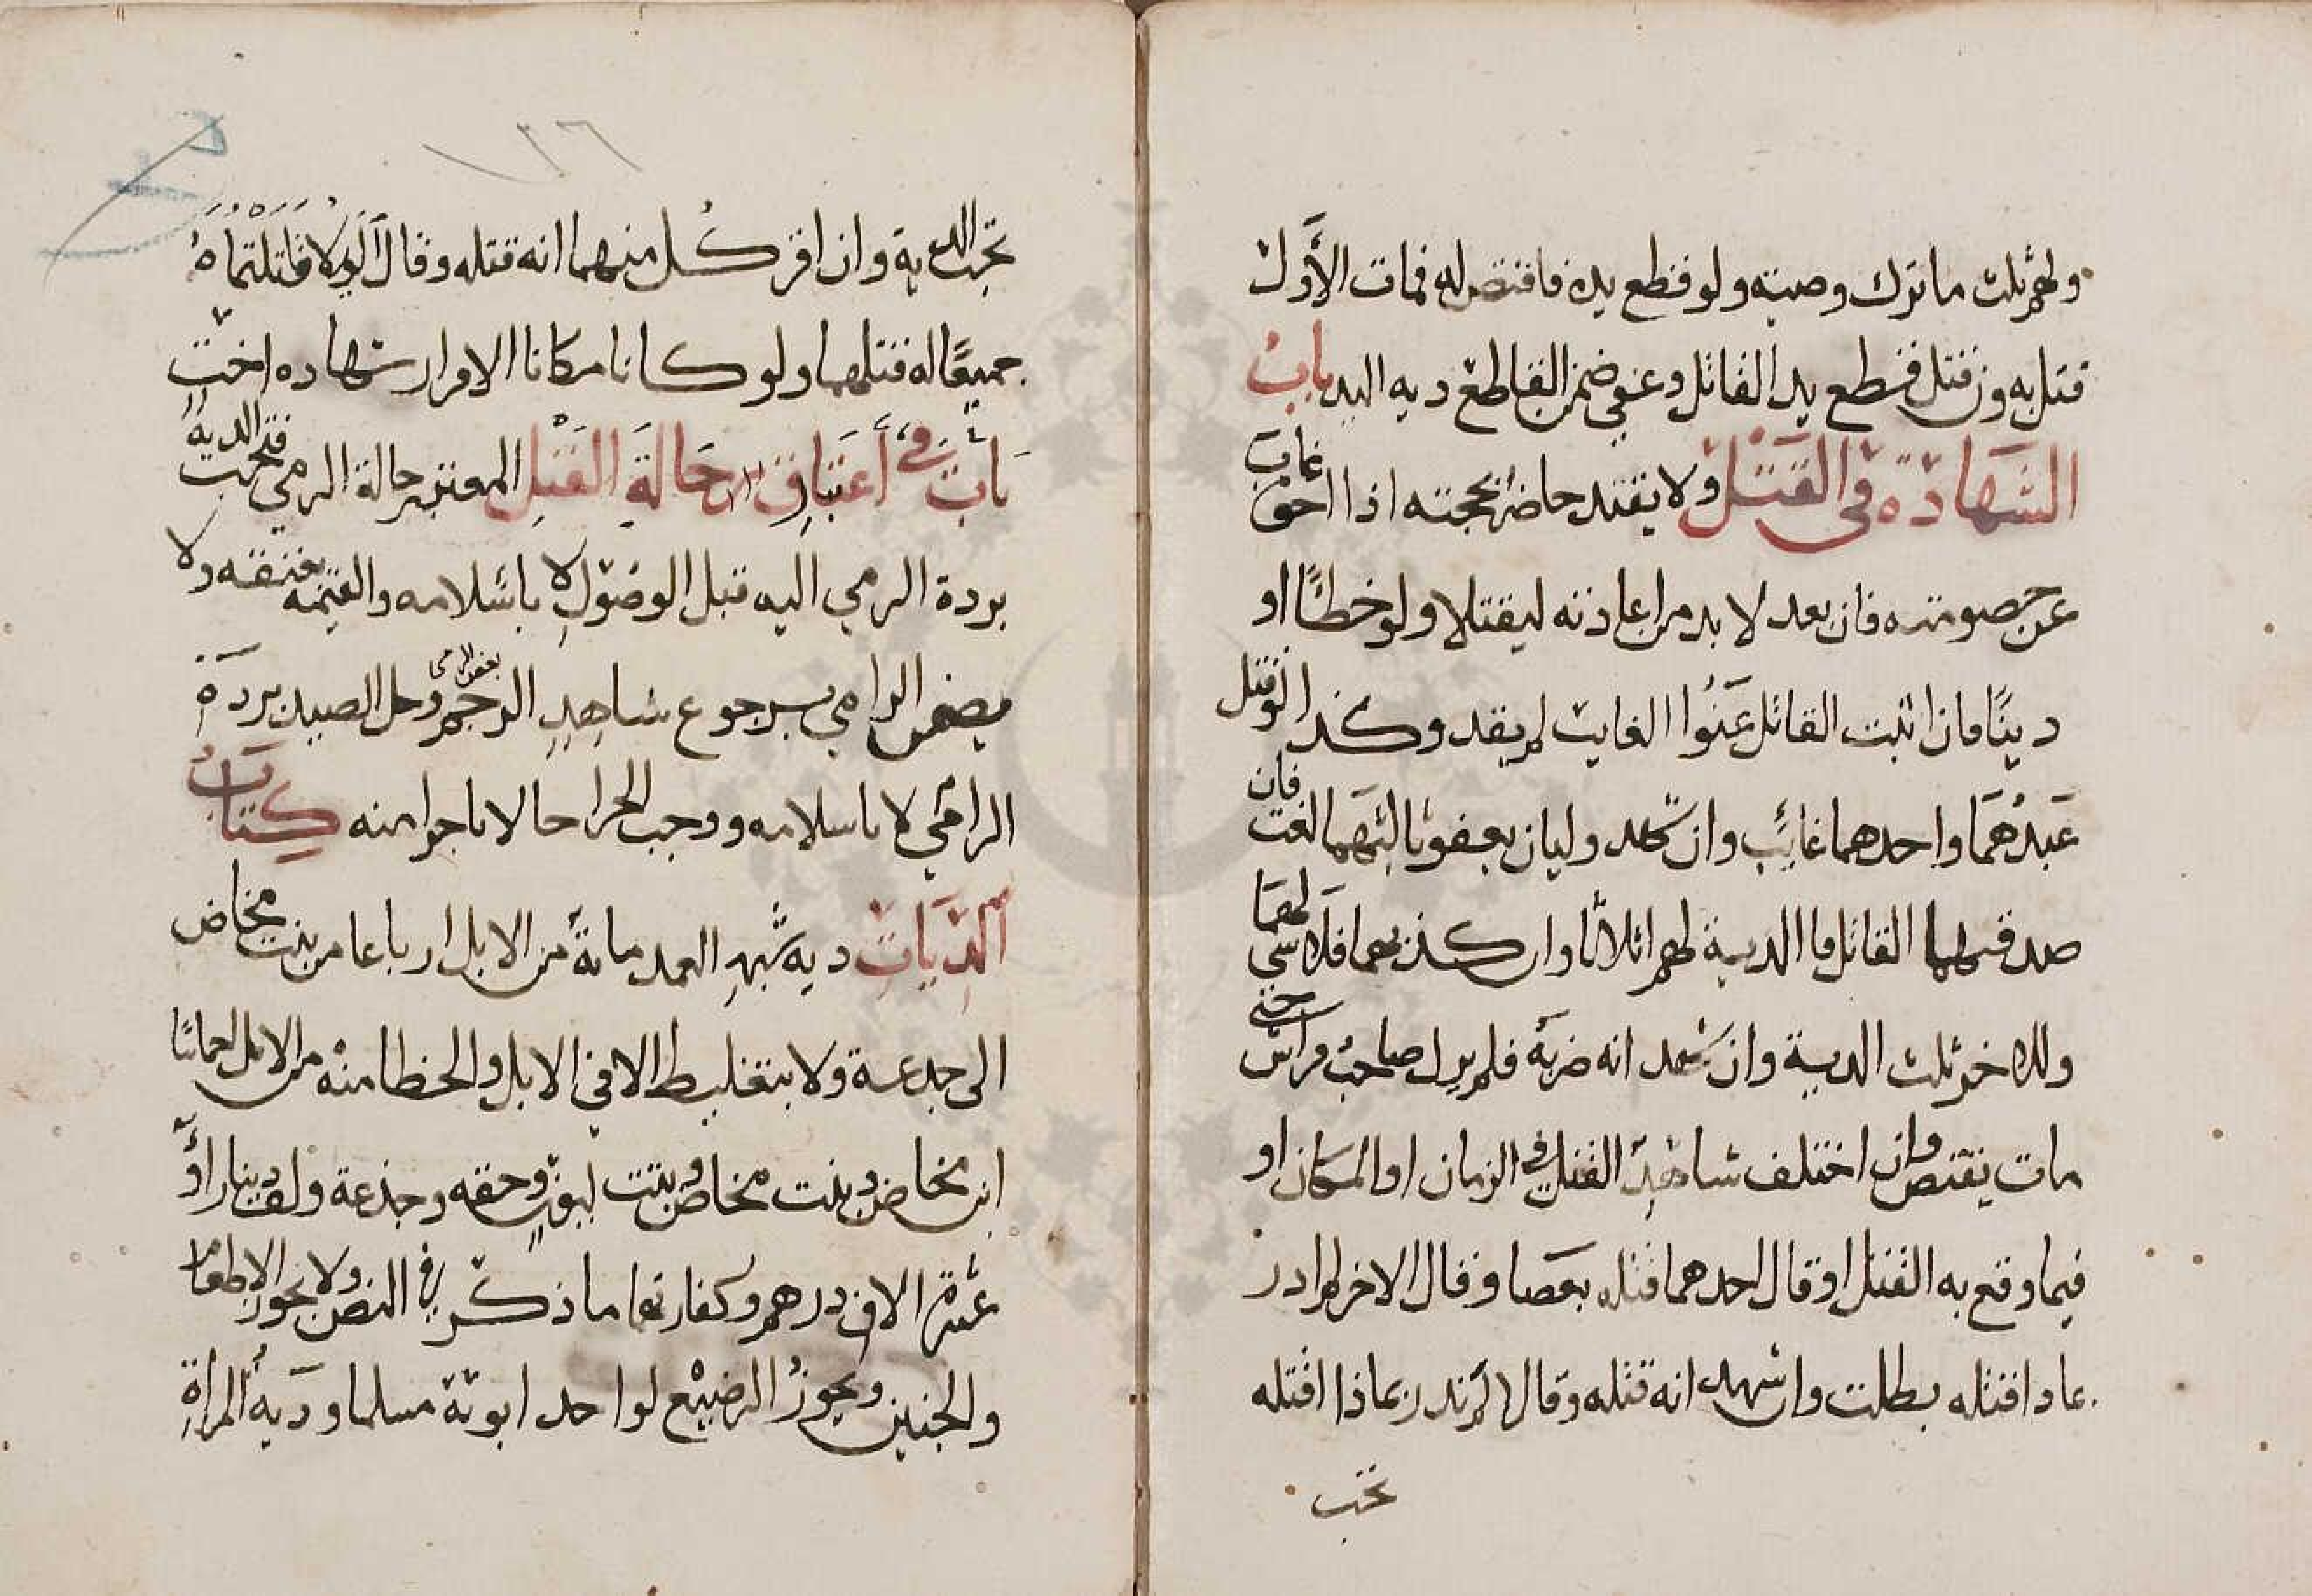 ولهم ثلث ما ترك وصيته ولو قطع يده فاقتص له فمات الأول
قتل به وان قتل فقطع يد القاتل وعفى ضمن القاطع ديه اليد باب
الشهادة في القتل ولا يقتد حاضر بحجته اذا اخوه غاب
عن خصومته فان يعد لا بد من اعادته ليقتلا ولو خطئًا او
دينًا فان اثبت القاتل عفوا الغايب لم يقد وكذا لو قتل
عبدهما واحدهما غائب وان شهد وليان بعفو ثالثهما لغت فان
صدقهما القاتل فالدية لهم اثلاثا وان كذبهما فلا شي لهما
وللاخر ثلث الدية وان شهد انه ضربه فلم يزل صاحب فراش حتى
مات يقتص وان اختلف شاهدا القتل في الزمان او المكان او
فيما وقع به القتل او قال احدهما قتله بعصا وقال الاخر لم ادر
بماذا قتله بطلت وان شهد انه قتله وقالا لم ندر بماذا قتله
تجب
تجب الدية وان اقر كل منهما انه قتله وقال الولي قتلتماه
جميعًا له قتلهما ولو كانا مكانا الاقرار شهاده لغت
باب في أعتبار حالة القتل المعتبر حالة الرمي فتجب الديه
بردة الرمي اليه قبل الوصول لا باسلامه والقيمه بعتقه ولا
يضمن الرامي برجوع شاهد الرجم بعد الرمي وحل الصيد بردة
الرامي لا باسلامه ووجب الجزا حالا لا باحرامنه كتاب
الديات ديه شبه العمد مائة من الابل ارباعا من بنت مخاض
الى جدعة ولا يتغليط الا في الابل والخطا منه من الابل اخماسًا
ابن مخاض وبنت مخاض وبنت لبون وحقه وجذعة والف دينار او
عشرة الاف درهم وكفارتهما ما ذكر في النص ولا يجوز الاطعام
والجنين ويجوز الرضيع لو احد ابويه مسلما وديه المراة